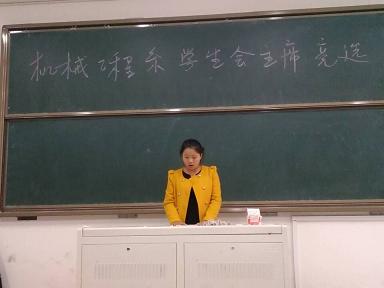 机械工程系学生会主席竞选